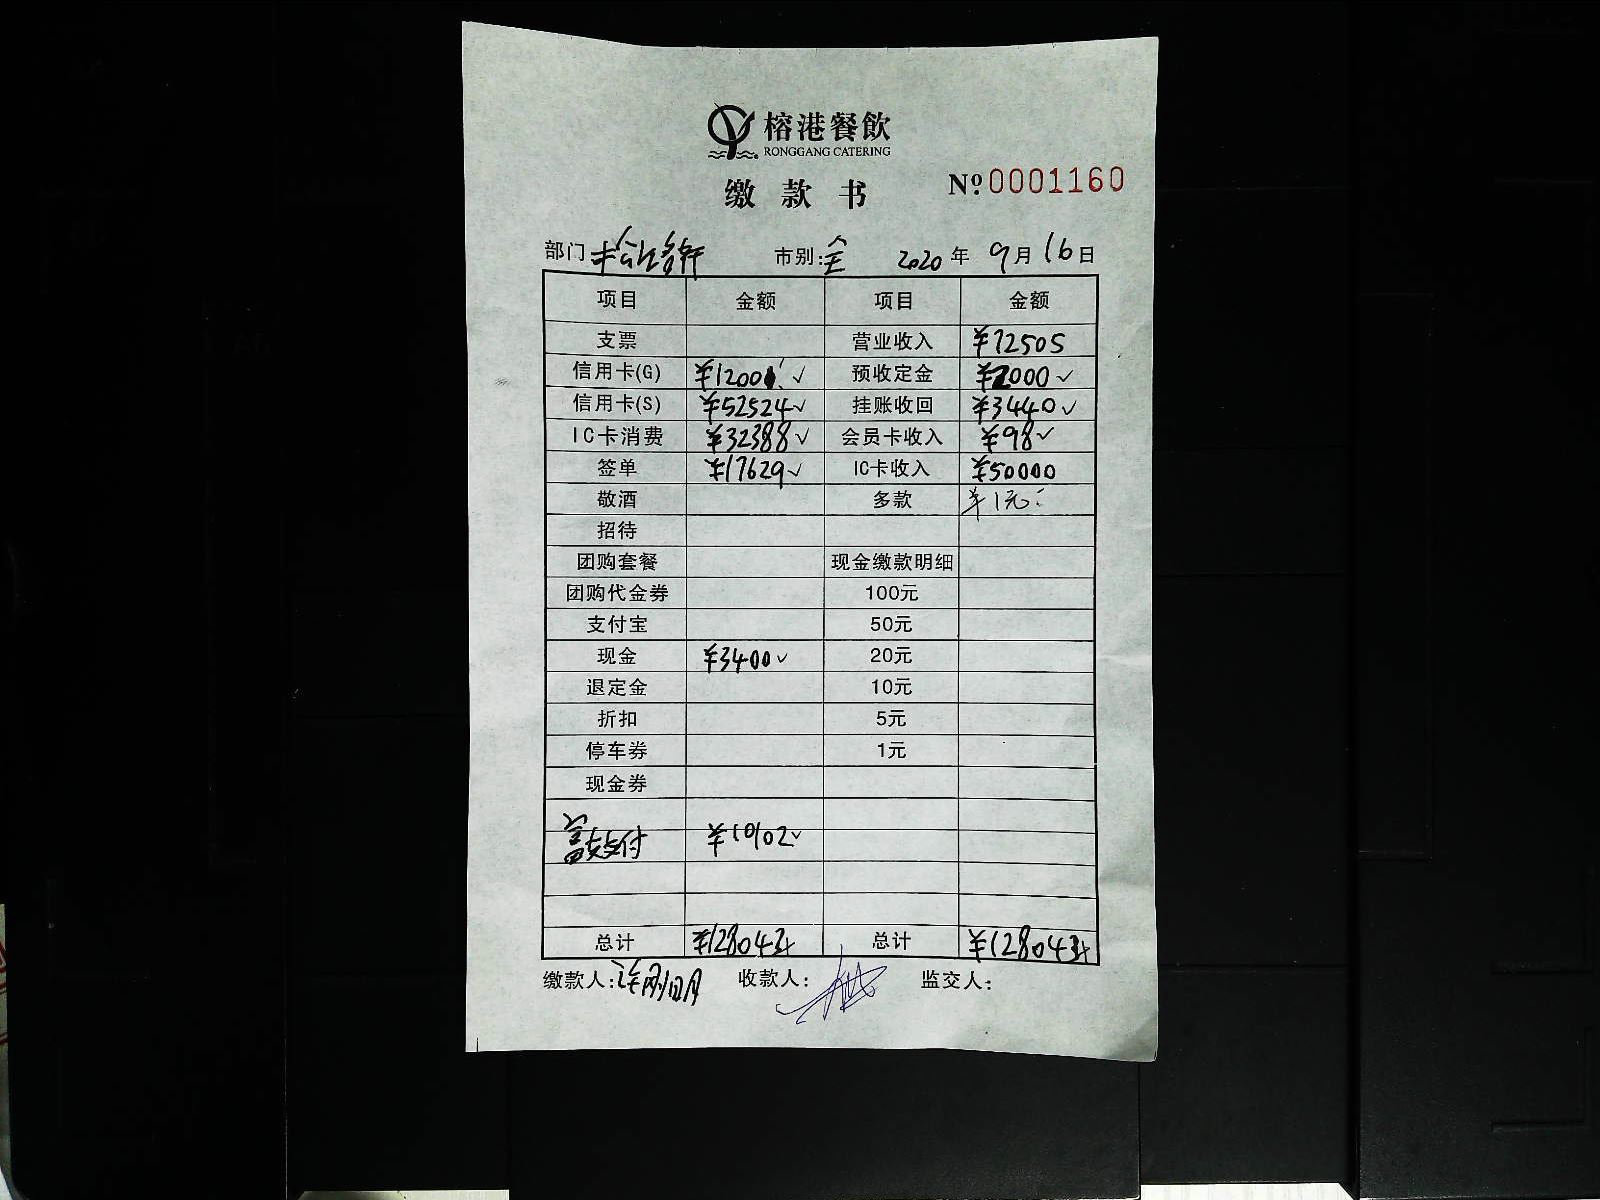 榕港餐飲
RONGGANG CATERING
缴款书
№0001160
部门 市别:全 2020年9月16日
项目 金额 项目 金额
支票 营业收入 ¥72505
信用卡(G) ¥12001 ✓ 预收定金 ¥2000 ✓
信用卡(S) ¥52524 ✓ 挂账收回 ¥3440 ✓
IC卡消费 ¥32388 ✓ 会员卡收入 ¥98 ✓
签单 ¥17629 ✓ IC卡收入 ¥50000
敬酒 多款 ¥1元
招待
团购套餐 现金缴款明细
团购代金券 100元
支付宝 50元
现金 ¥3400 ✓ 20元
退定金 10元
折扣 5元
停车券 1元
现金券
支付 ¥10102 ✓
总计 ¥128044 总计 ¥128044
缴款人: 收款人: 监交人: